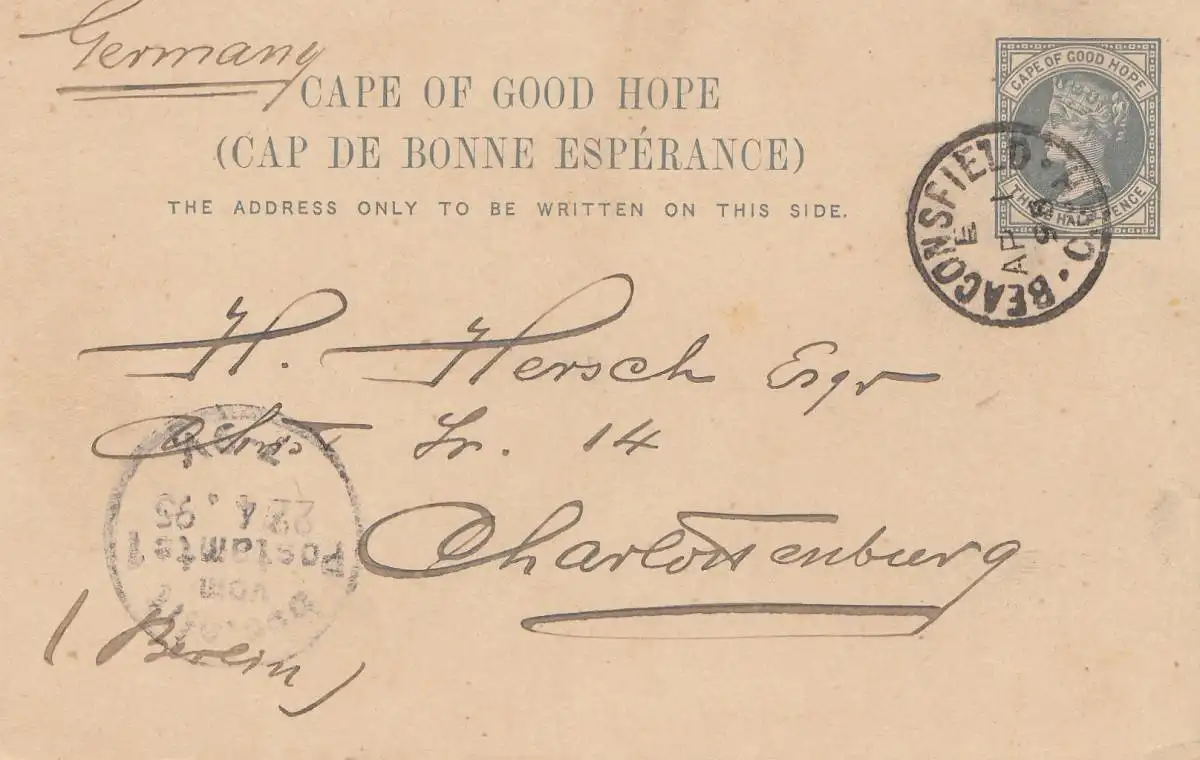 Germany
CAPE OF GOOD HOPE
(CAP DE BONNE ESPÉRANCE)
THE ADDRESS ONLY TO BE WRITTEN ON THIS SIDE.
CAPE OF GOOD HOPE
THREE HALF PENCE
BEACONSFIELD · C.
E
AP 1
95
H. Hersch Esqr
Str. 14
Charlottenburg
(Berlin)
22 4. 95
Postamte 1
vom